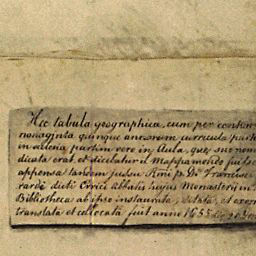 Hec tabula geographica, cum per contin
nonaginta quinque annorum curricula part
in ecclesia partim vero in Aula, quæ suo nom
dicata erat et dicebatur il Mappamondo fuisse
appensa tandem jussu Rmi p. Dn Francisci
rardi dicti Cirici abbatis hujus Monasterii in
Bibliotheca ab ipso instaurata, et exor
translata et collocata fuit anno 1655 die 20